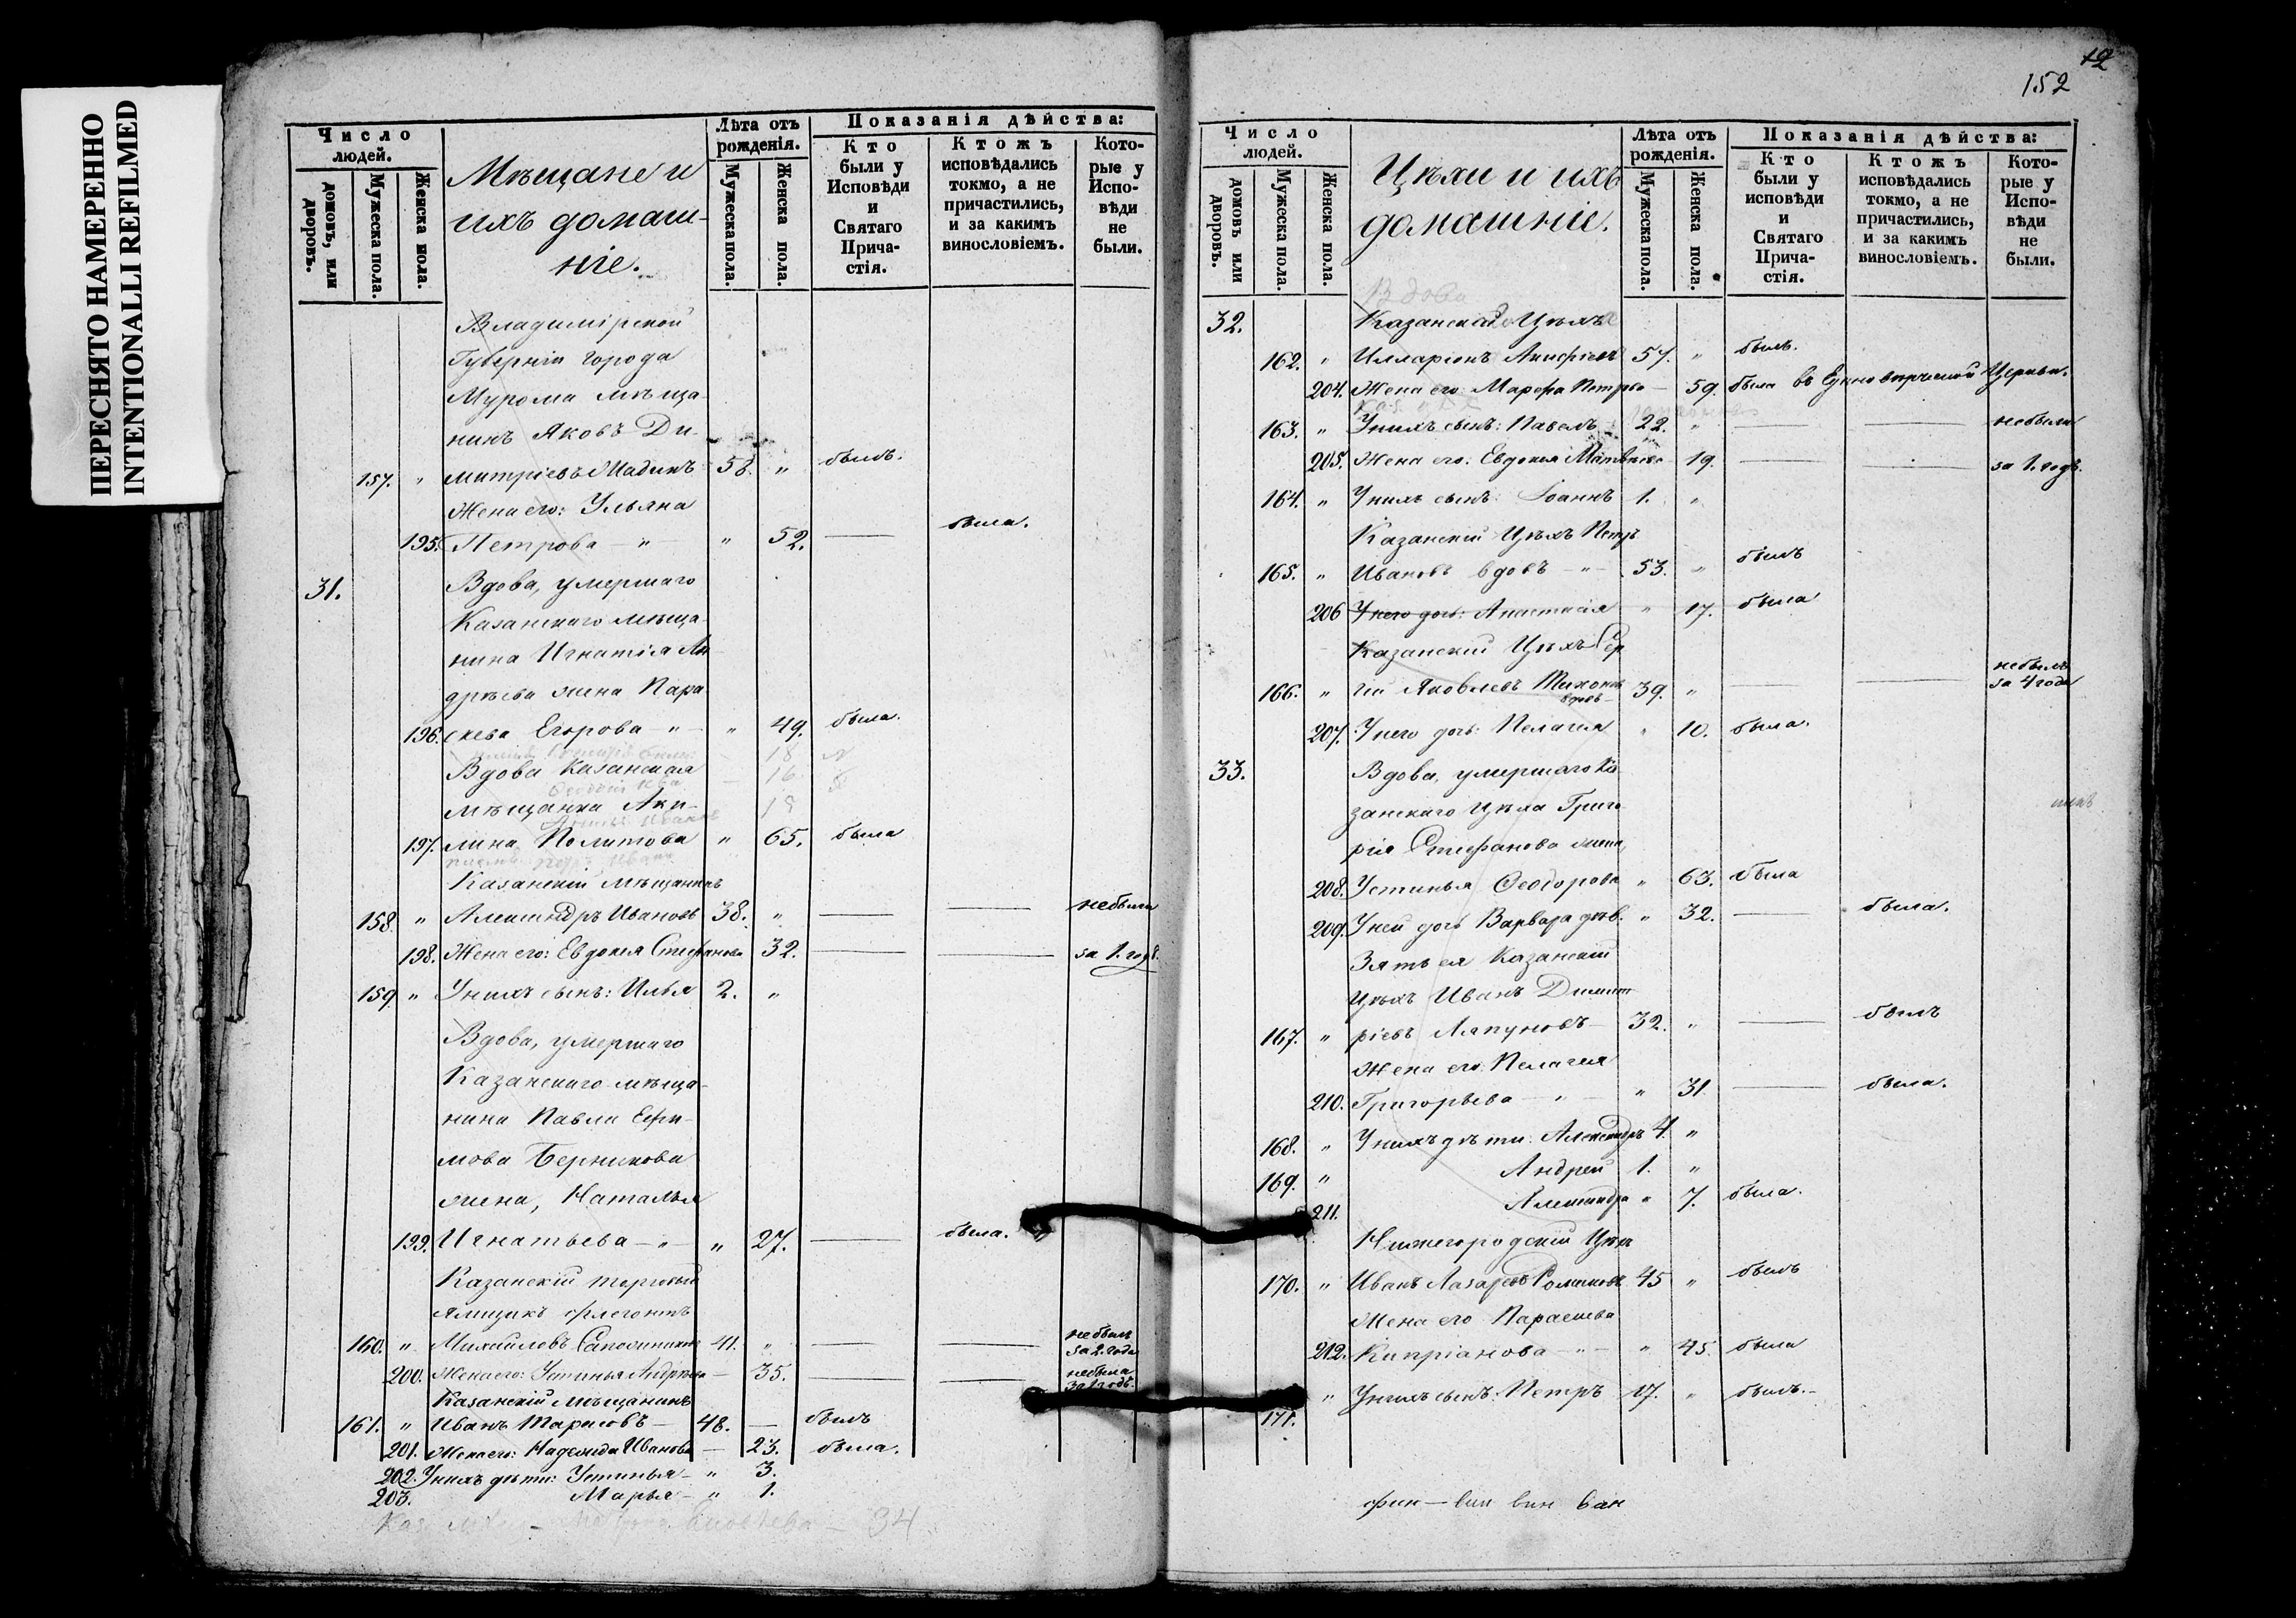 ПЕРЕСНЯТО НАМЕРЕННО
INTENTIONALLI REFILMED
Число людей.
домовъ, или дворовъ.
Мужеска пола.
Женска пола.
Мѣщане и
ихъ домаш-
ніе.
Лѣта отъ рожденія.
Мужеска пола.
Женска пола.
Показанія дѣйства:
Кто были у Исповѣди и Святаго Прича-стія.
Ктожъ исповѣдались токмо, а не причастились, и за какимъ винословіемъ.
Кото-рые у Испо-вѣди не были.
Владимірской
Губерніи города
Мурома мѣща-
нинъ Яковъ Ди-
157. " митріевъ 58. " былъ.
Жена его: Ульяна
195. Петрова — " — " 52. — была.
31. Вдова, умершаго
Казанскаго мѣща-
нина Игнатія Ан-
дрѣева жена Пара-
196. скева Егорова — " — " 49. была.
Вдова Казанская — 18
16
мѣщанка Аку-
197. лина Политова " 65. была
Казанскій мѣщанинъ
158. " Александръ Ивановъ 38. " — — небыли
198. Жена его: Евдокія Стефанова 32. — — за 1. годъ.
159. " У нихъ сынъ: Илья 2. "
Вдова, умершаго
Казанскаго мѣща-
нина Павла Ефи-
мова Берникова
жена, Наталья
199. Игнатьева — " — " 27. — была.
Казанскій торговый
ямщикъ Флегонтъ
160. " Михайловъ Сапожниковъ 41. " — — небылъ за 2. года
200. Жена его: Устинья Андрѣева — 35. — — небыла за 1 годъ.
Казанскій мѣщанинъ
161. " Иванъ Тарасовъ — 48. — былъ
201. Жена его: Надежда Иванова — 23. была.
202. У нихъ дѣти: Устинья — " 3.
203. Марья — " 1.
34
12
152
Число людей.
домовъ или дворовъ.
Мужеска пола.
Женска пола.
Цѣхи и ихъ
домашніе.
Лѣта отъ рожденія.
Мужеска пола.
Женска пола.
Показанія дѣйства:
Кто были у исповѣди и Святаго Прича-стія.
Ктожъ исповѣдались токмо, а не причастились, и за какимъ винословіемъ.
Кото-рые у Испо-вѣди не были.
Вдова
32. Казанскій Цѣхъ
162. " Илларіонъ 57. " былъ.
204. Жена его: Марѳа Петрова — 59. была въ Единовѣрческой Церкви.
163. " У нихъ сынъ: Павелъ 22. " — — небыли
205. Жена его: Евдокія Матвѣева 19. — — за 1. годъ.
164. " У нихъ сынъ: Іоаннъ 1. "
Казанскій Цѣхъ Петръ
165. " Ивановъ вдовъ — " — 53. " былъ
206 У него дочь: Анастасія " 17. была
Казанскій Цѣхъ Сер-
166. " гій Яковлевъ Тихоновъ вдовъ — 39. " — — небылъ за 4 года
207. У него дочь: Пелагея " 10. была.
33. Вдова, умершаго Ка-
занскаго Цѣха Григо-
рія Стефанова жена,
208. Устинья Ѳеодорова " 63. была
209. У ней дочь Варвара дѣв. " 32. — была.
Зять ея Казанскій
Цѣхъ Иванъ Димит-
167. " ріевъ Ляпуновъ — 32. " — былъ
Жена его Пелагея
210. Григорьева — " — " 31 — была.
168. " У нихъ дѣти: Александръ 4. "
169. " Андрей 1. "
211. Александра " 7. была.
Нижегородскій Цѣхъ
170. " Иванъ Лазаревъ Романовъ 45 " былъ
Жена его Параскева
212. Кипріанова — " — " 45. была
171. " У нихъ сынъ: Петръ 17. " былъ.